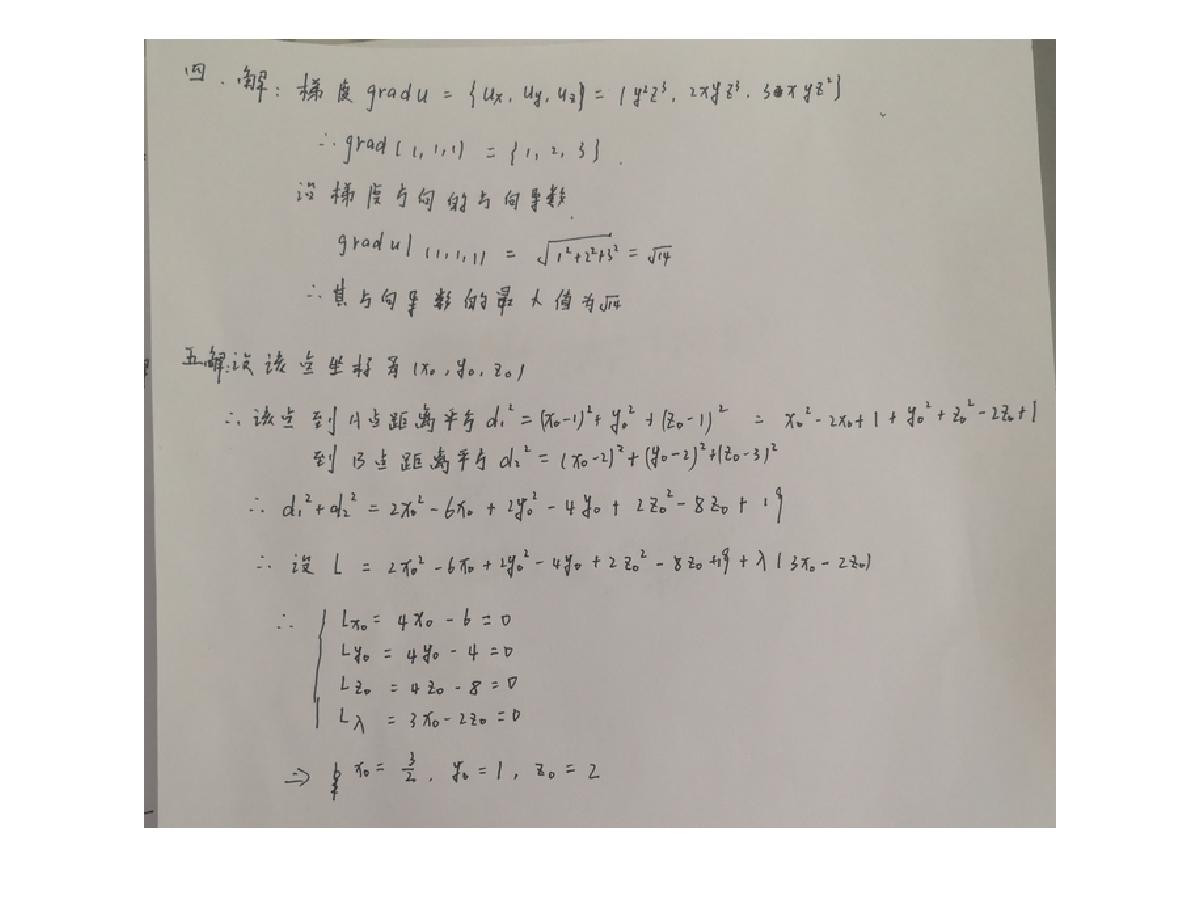 四.解:梯度gradu = {ux, uy, uz} = {y²z³, 2xyz³, 3xyz²}
∴ grad(1,1,1) = {1, 2, 3}.
设梯度方向的方向导数
gradu|(1,1,1) = √1²+2²+3² = √14
∴ 其方向导数的最大值为√14
五.解:设该点坐标为(x₀, y₀, z₀)
∴ 该点到A点距离平方d₁² = (x₀-1)² + y₀² + (z₀-1)² = x₀²-2x₀+1+y₀²+z₀²-2z₀+1
到B点距离平方d₂² = (x₀-2)²+(y₀-2)²+(z₀-3)²
∴ d₁²+d₂² = 2x₀²-6x₀+2y₀²-4y₀+2z₀²-8z₀+19
∴ 设 L = 2x₀²-6x₀+2y₀²-4y₀+2z₀²-8z₀+19+λ(3x₀-2z₀)
∴ { Lx₀ = 4x₀-6=0
Ly₀ = 4y₀-4=0
Lz₀ = 4z₀-8=0
Lλ = 3x₀-2z₀=0
⇒ x₀ = 3/2, y₀=1, z₀=2